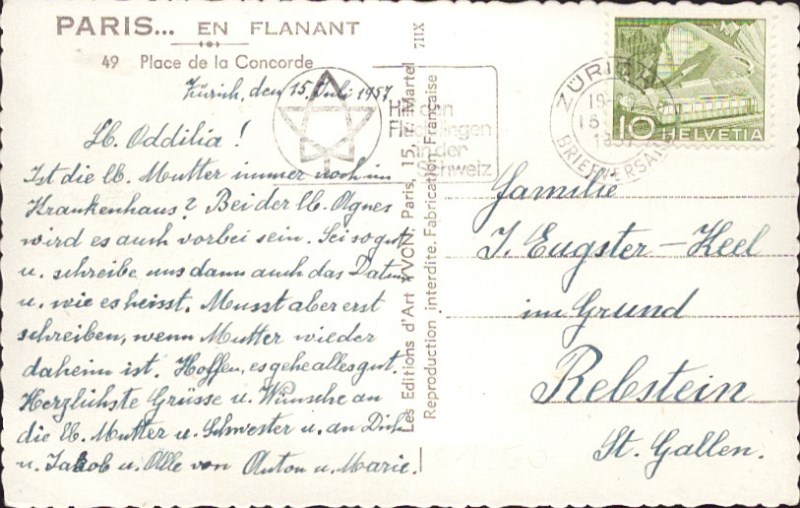 PARIS... EN FLANANT
49 Place de la Concorde
Zürich, den 15. Juli 1957
Lb. Oddilia!
Ist die lb. Mutter immer noch im
Krankenhaus? Bei der lb. Agnes
wird es auch vorbei sein. Sei so gut
u. schreibe uns dann auch das Datum
u. wie es heisst. Musst aber erst
schreiben, wenn Mutter wieder
daheim ist. Hoffen, es gehe alles gut.
Herzlichste Grüsse u. Wünsche an
die lb. Mutter u. Schwester u. an Dich
u. Jakob u. Alle von Anton u. Marie.
Les Editions d'Art YVON, Paris, 15, Martel
Reproduction interdite. Fabrication Française
7IIX
Helft den
Flüchtlingen
in der
Schweiz
ZÜRICH
BRIEFVERSAND
10 HELVETIA
Familie
J. Eugster-Keel
im Grund
Rebstein
St. Gallen.